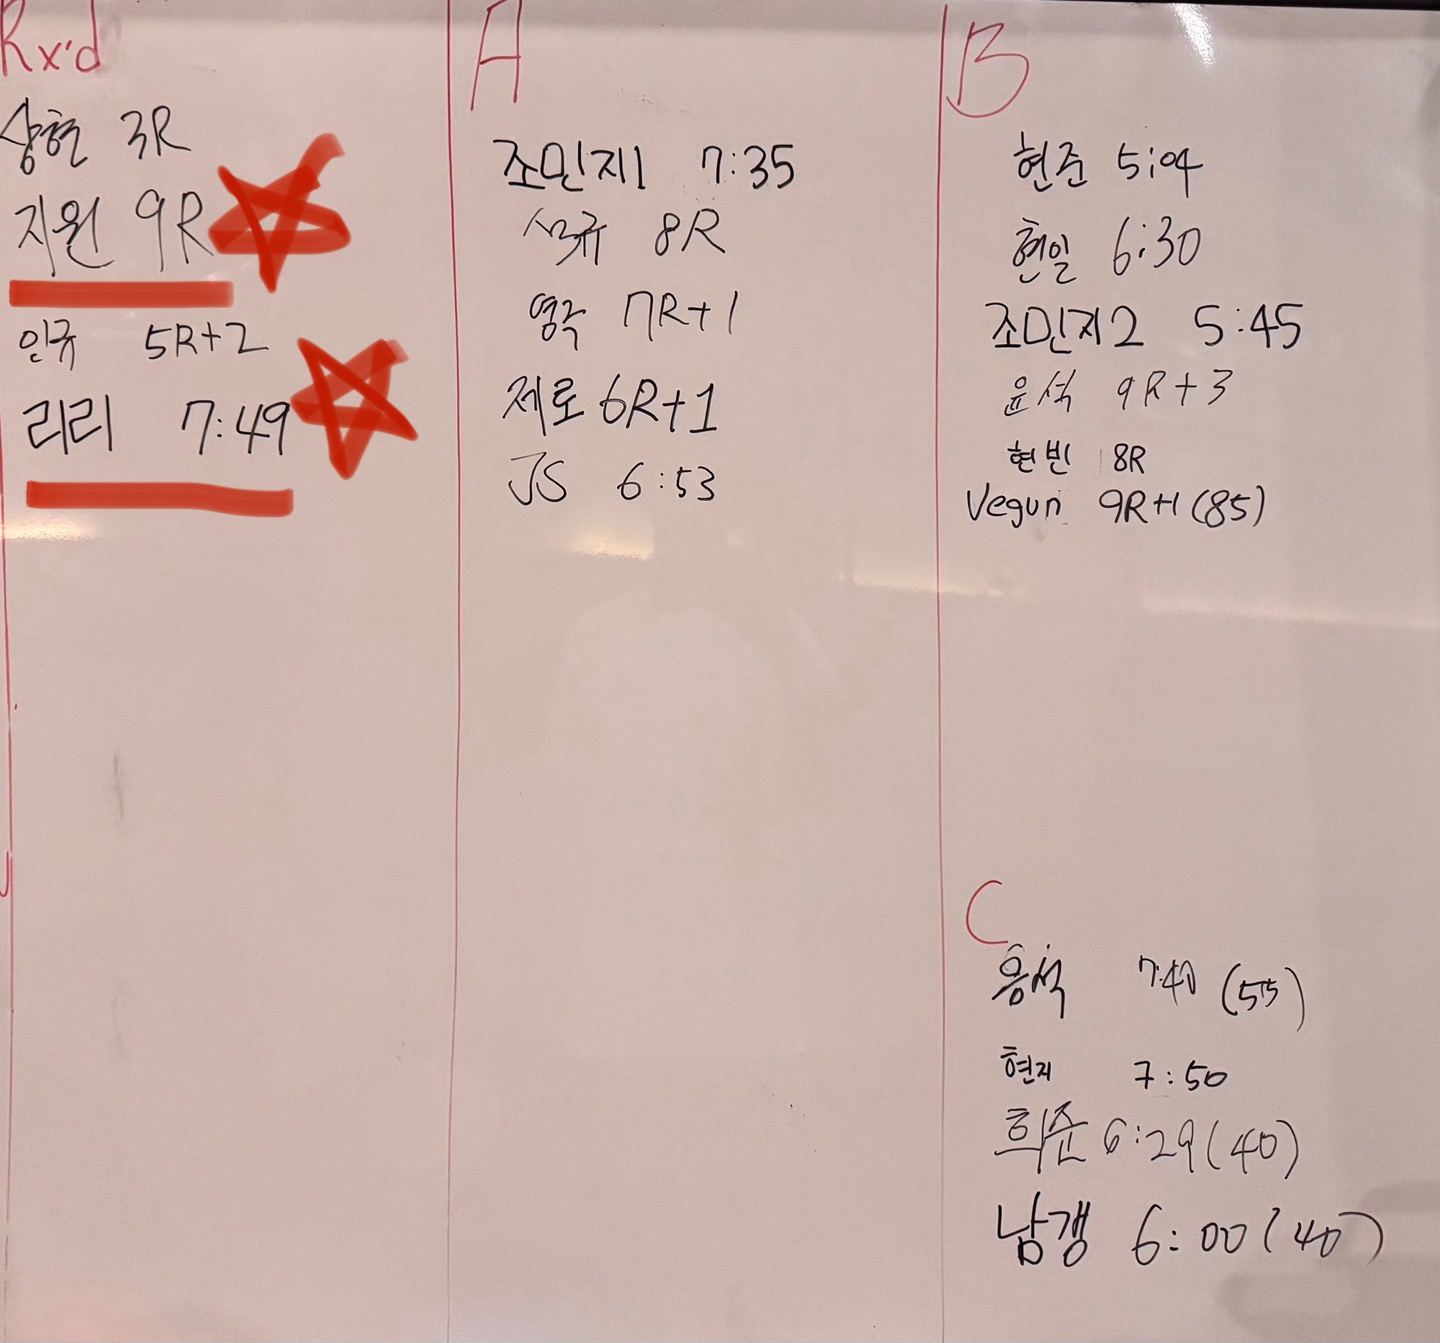 Rx'd
상현 3R
지원 9R
인규 5R+2
리리 7:49
A
조민지1 7:35
석규 8R
영각 7R+1
제로 6R+1
JS 6:53
B
현준 5:04
현일 6:30
조민지2 5:45
윤석 9R+3
현빈 8R
Vegun 9R+1 (85)
C
용석 7:40 (55)
현지 7:50
희준 6:29 (40)
남갱 6:00 (40)